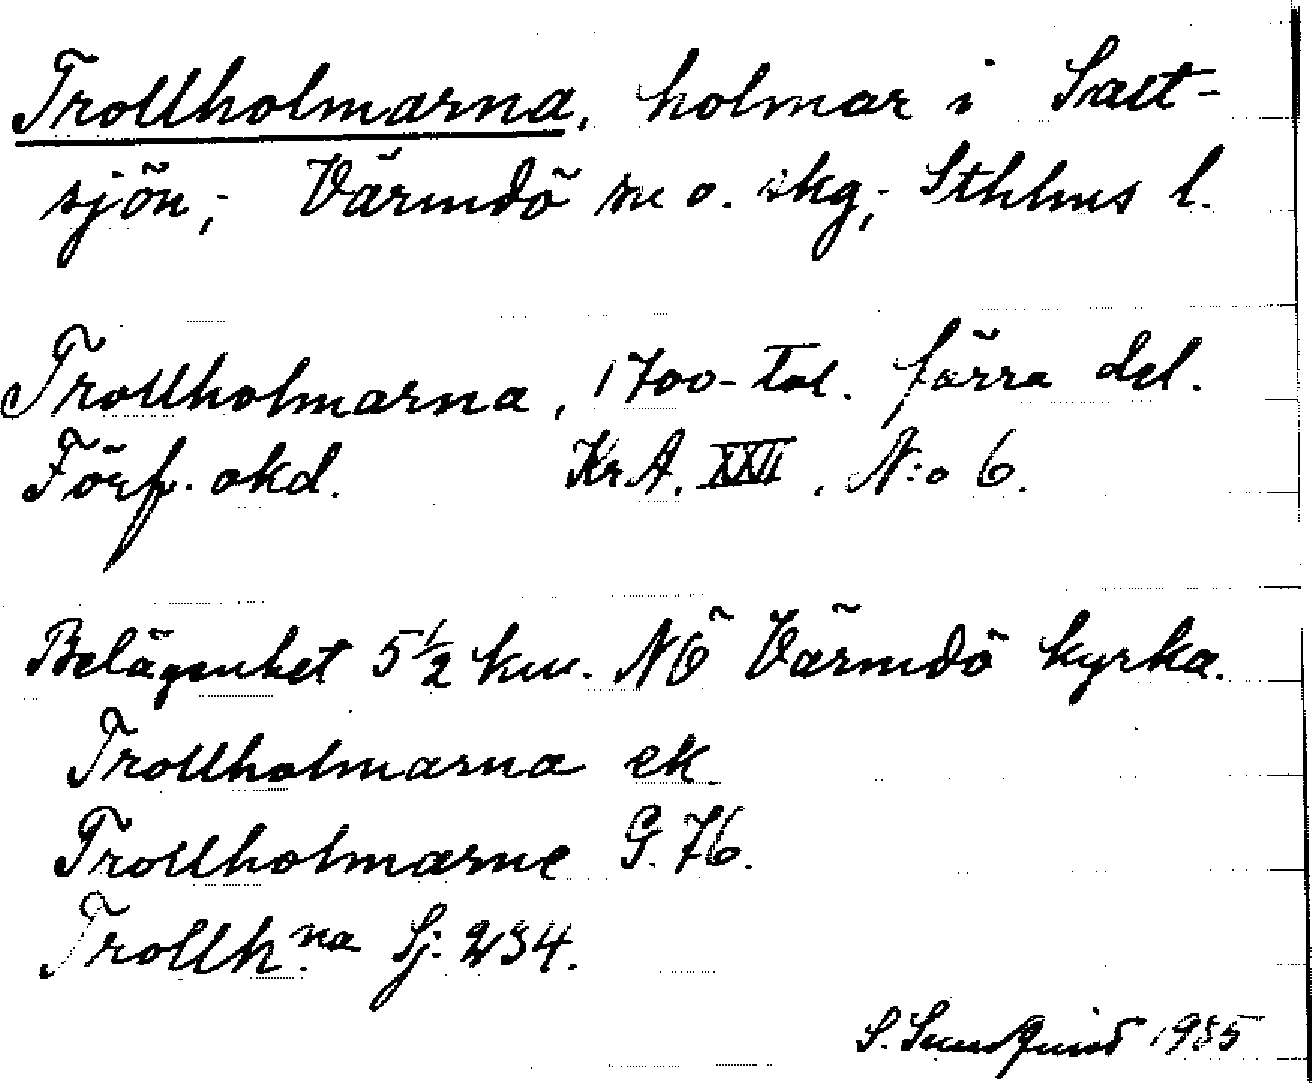 Trollholmarna, holmar i Salt-
sjön; Värmdö sn o. skg; Sthlms l.
Trollholmarna, 1700-tal. förra del.
Förf. okd. Kr A. XXII, N:o 6.
Belägenhet 5½ km. NÖ Värmdö kyrka.
Trollholmarna ek
Trollholmarne G. 76.
Trollh.na Sj. 234.
S. Sundquist 1935